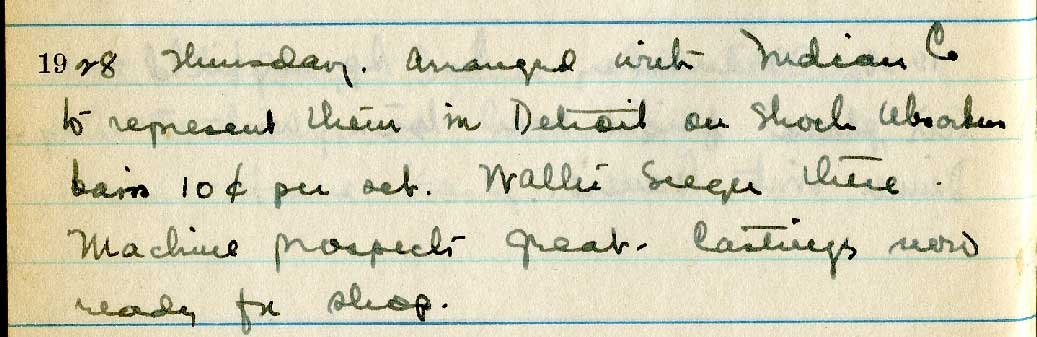 1928 Thursday. Arranged with Indian Co
to represent them in Detroit on Shock Absorbers
basis 10¢ per set. Walter Seeger there.
Machine prospects great. Castings now
ready for shop.